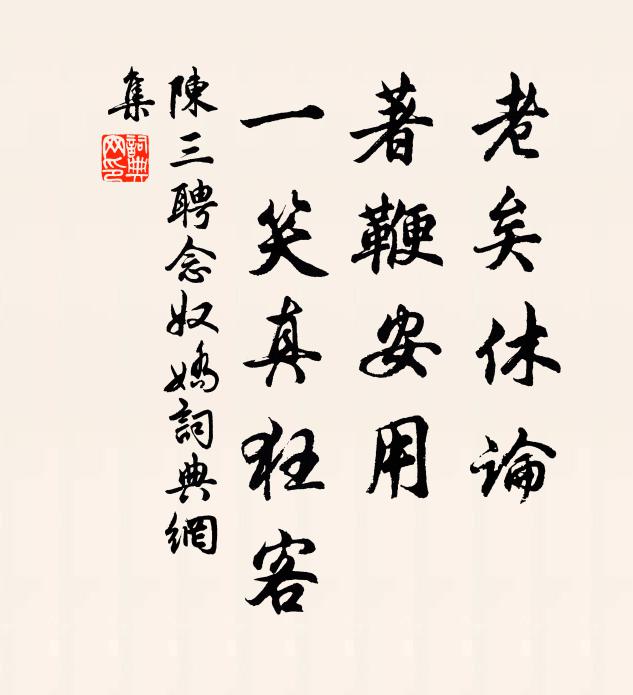 老矣休論
著鞭安用
一笑真狂客
陳三聘念奴嬌詞典網
集
詞典網印